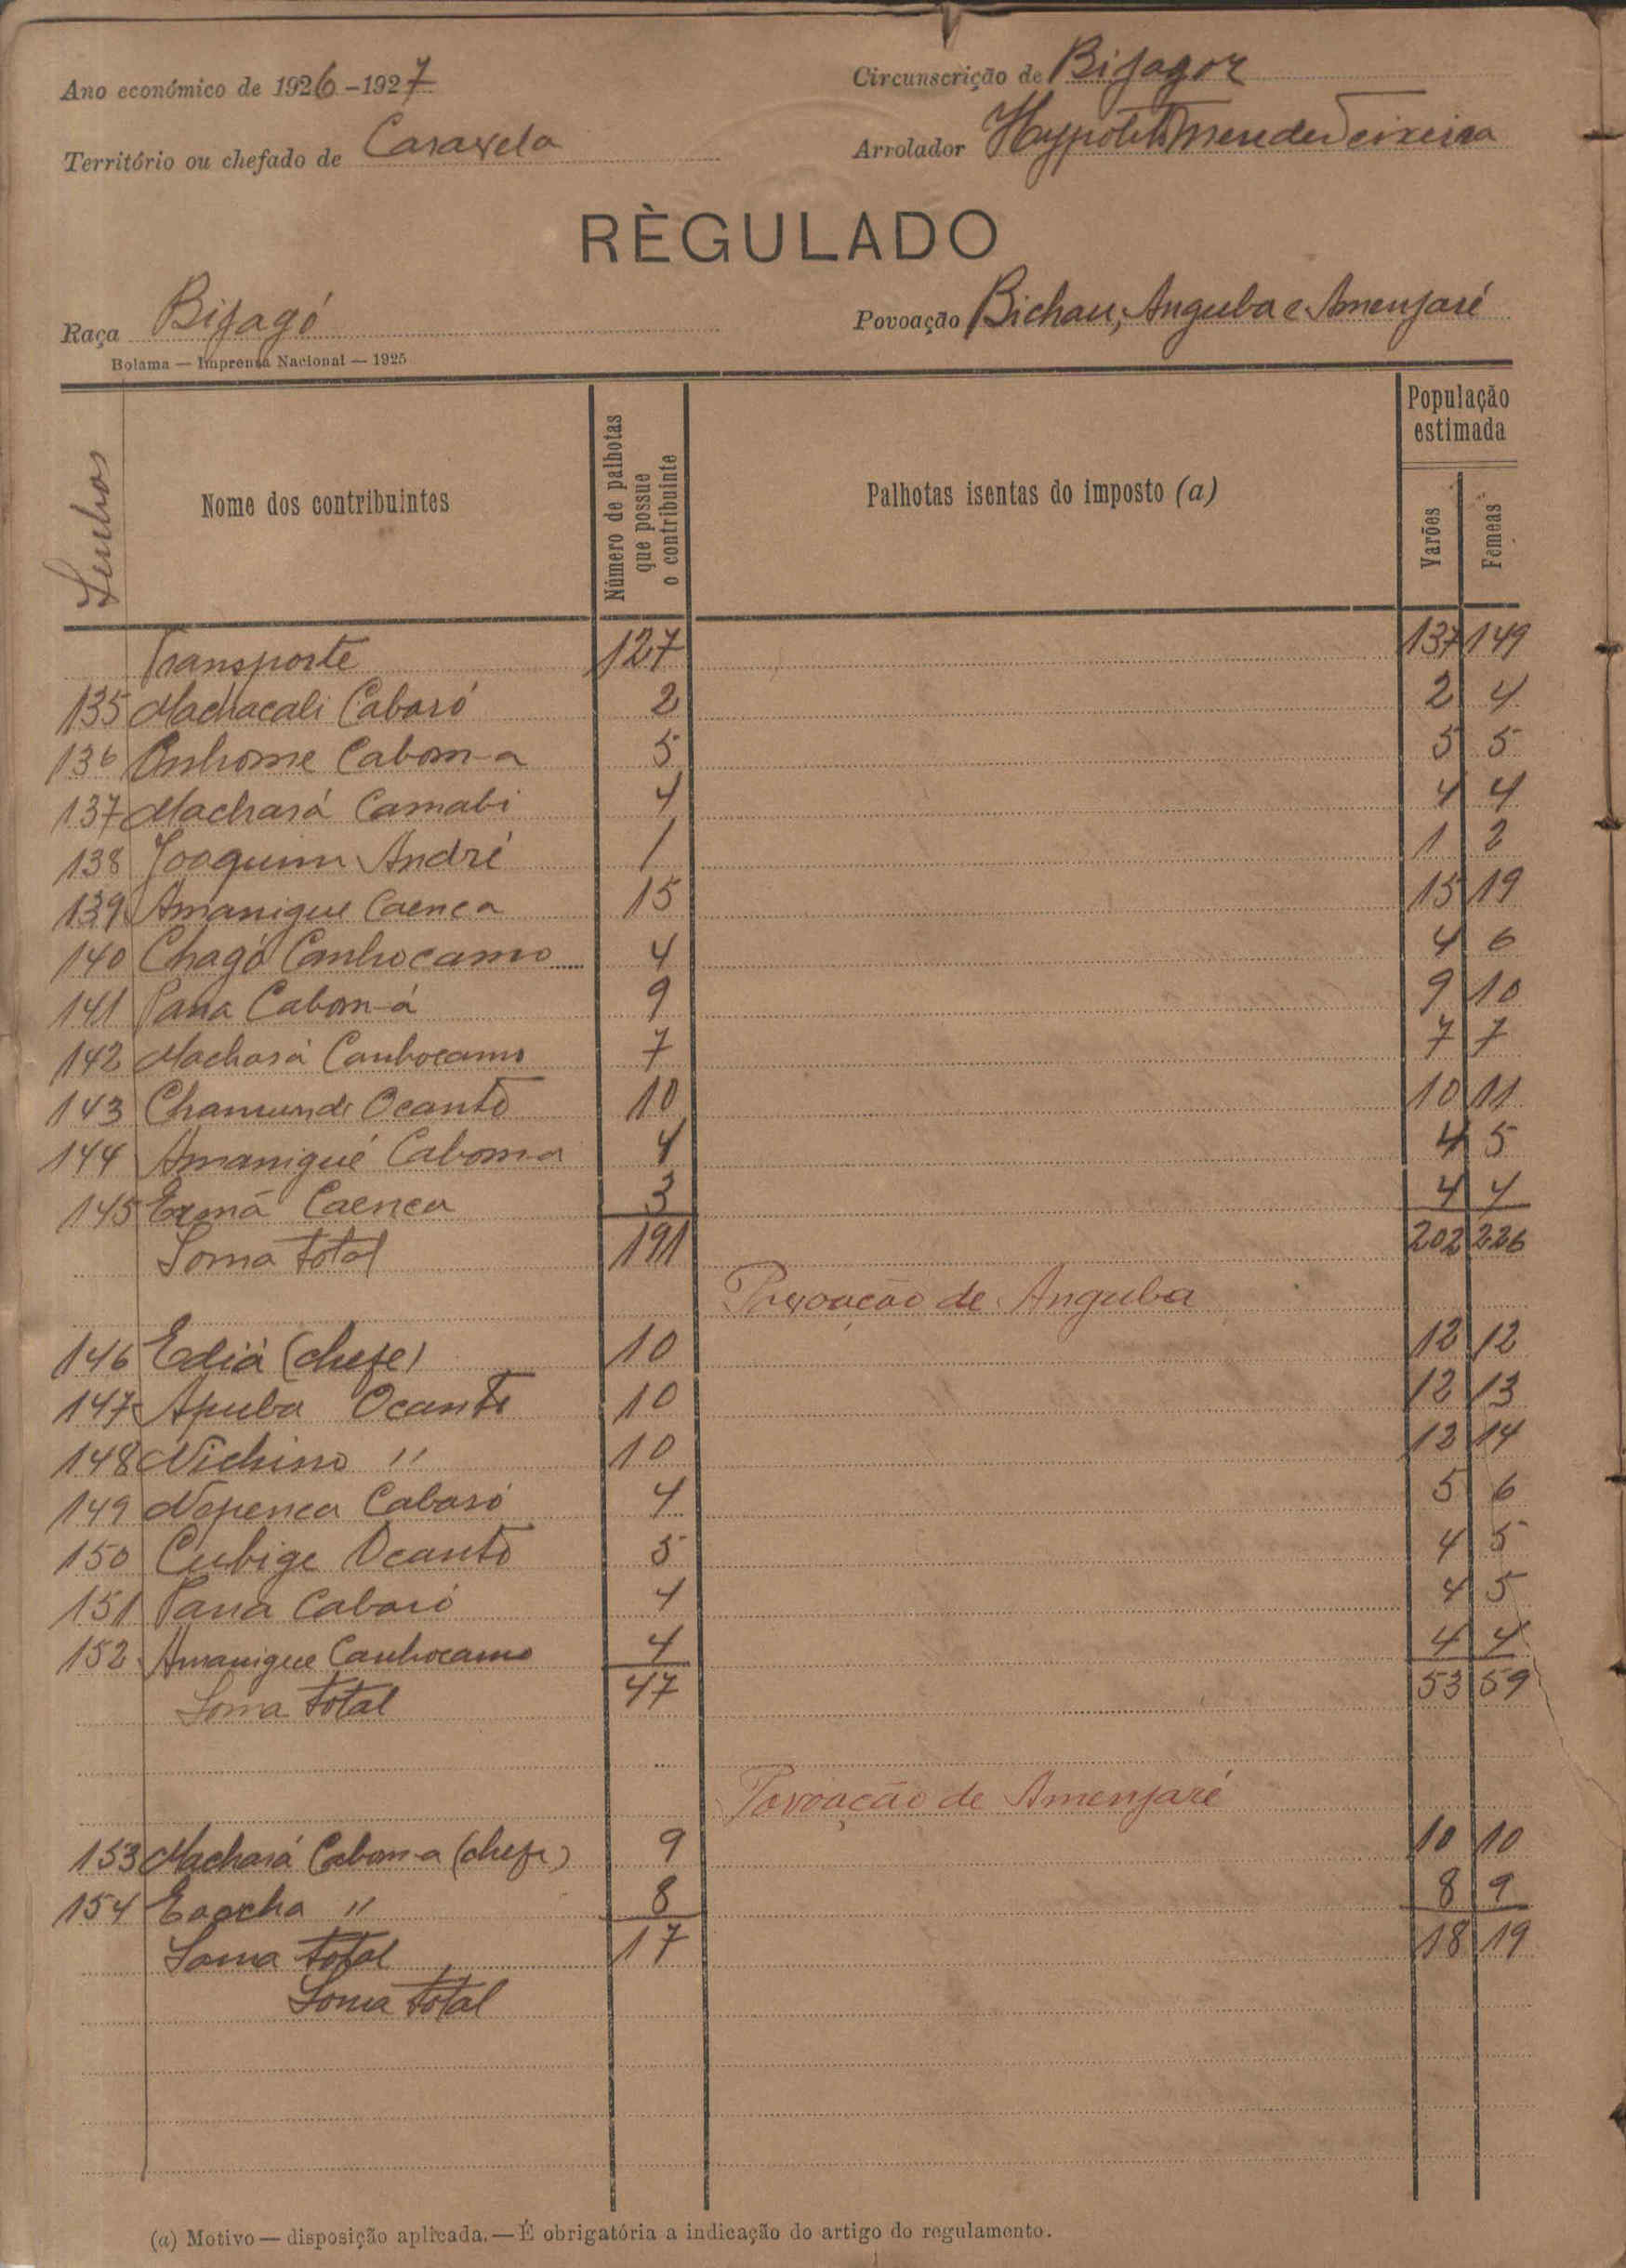 Ano económico de 1926-1927
Circunscrição de Bijagoz
Território ou chefado de Caravela
Arrolador Hypolito Mendes Teixeira
RÈGULADO
Raça Bijagó
Povoação Bichau, Anguba e Amenjaré
Bolama — Imprensa Nacional — 1925
Nome dos contribuintes
Número de palhotas que possue o contribuinte
Palhotas isentas do imposto (a)
População estimada
Varões
Femeas
Transporte 127 137 149
135 Machacali Cabaró 2 2 4
136 Onhome Cabom-a 5 5 5
137 Machará Camabi 4 4 4
138 Joaquim André 1 1 2
139 Amanigue Caenca 15 15 19
140 Chagó Canhocamo 4 4 6
141 Pana Cabom-á 9 9 10
142 Machará Canhocamo 7 7 7
143 Chamundi Ocanto 10 10 11
144 Amanigué Caboma 4 4 5
145 Caenca 3 4 4
Soma total 191 202 226
Povoação de Anguba
146 Ediá (chefe) 10 12 12
147 Apuba Ocanto 10 12 13
148 Nichino " 10 12 14
149 Nepenca Cabaró 4 5 6
150 Cubige Ocanto 5 4 5
151 Pana Cabaró 4 4 5
152 Amanigue Canhocamo 4 4 4
Soma total 47 53 59
Povoação de Amenjaré
153 Machará Cabom-a (chefe) 9 10 10
154 " 8 8 9
Soma total 17 18 19
Soma total
(a) Motivo — disposição aplicada. — É obrigatória a indicação do artigo do regulamento.